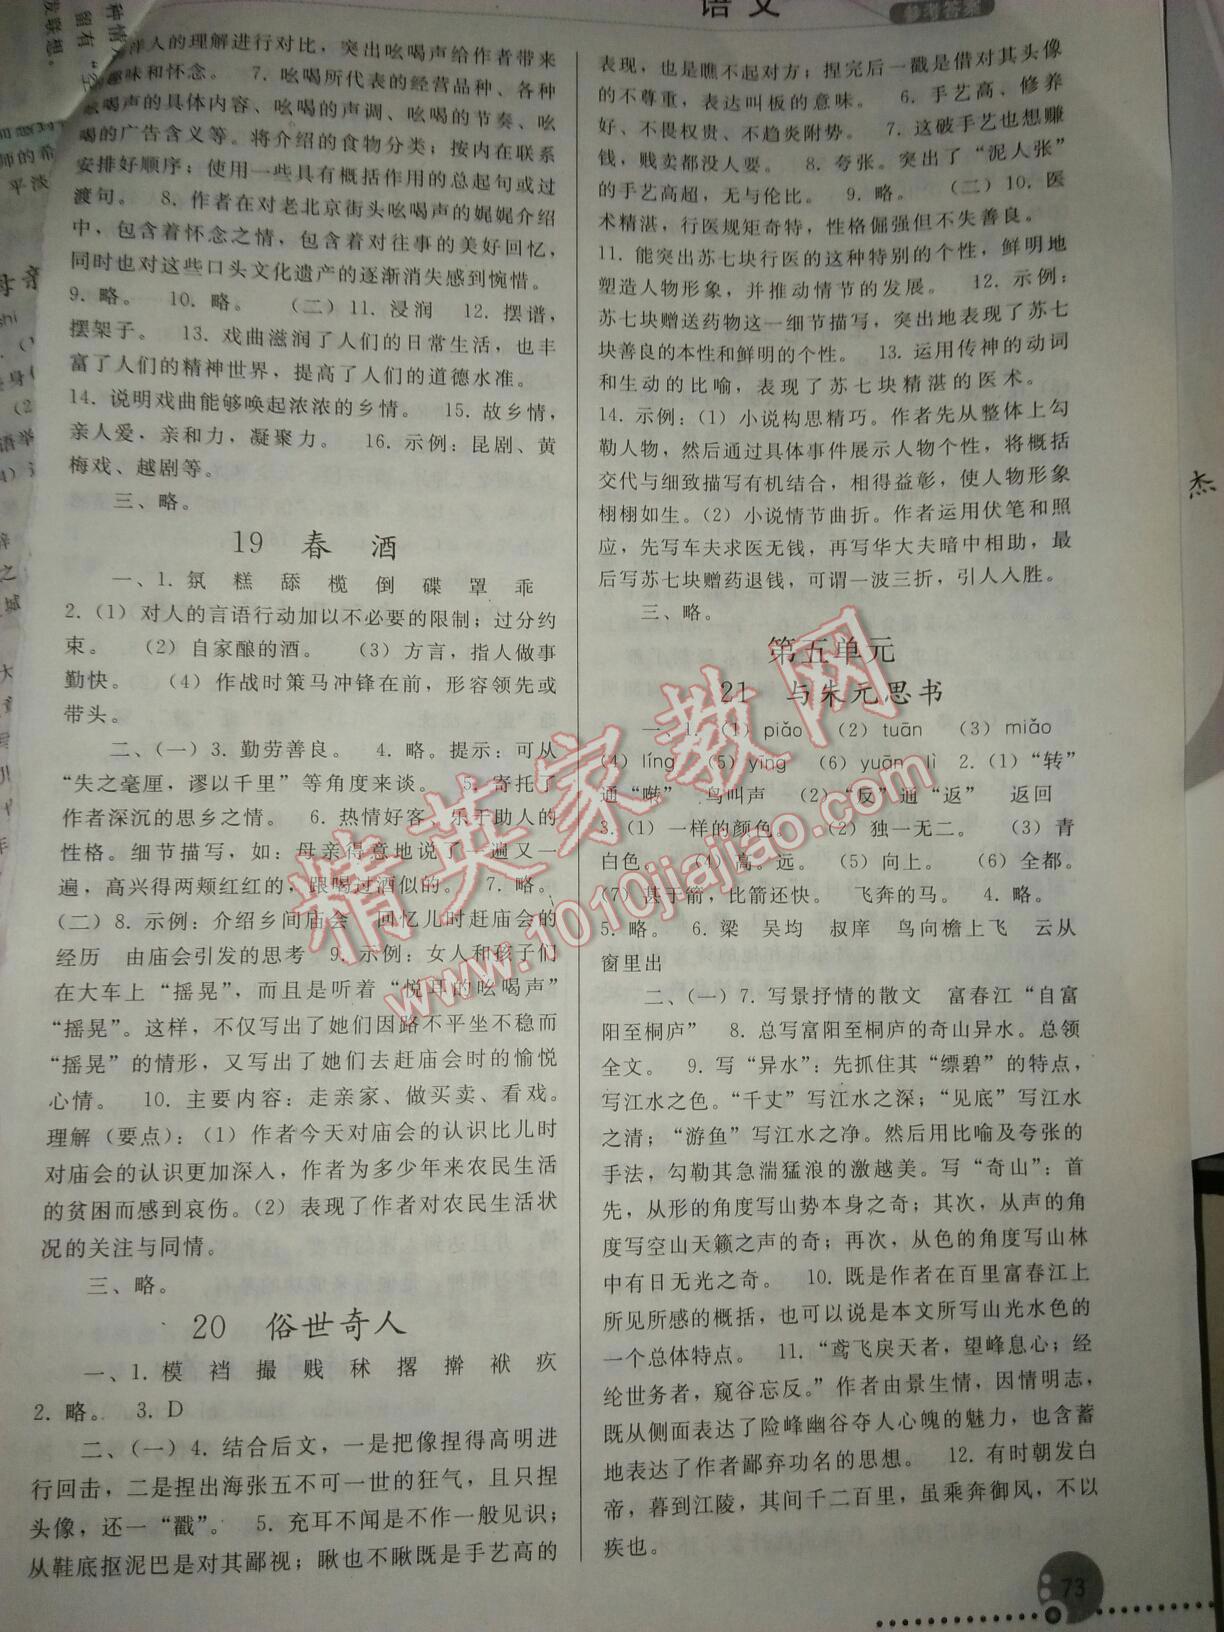 语文
参考答案
洋人的理解进行对比，突出吆喝声给作者带来
趣味和怀念。 7. 吆喝所代表的经营品种、各种
吆喝声的具体内容、吆喝的声调、吆喝的节奏、吆
喝的广告含义等。将介绍的食物分类；按内在联系
安排好顺序；使用一些具有概括作用的总起句或过
渡句。 8. 作者在对老北京街头吆喝声的娓娓介绍
中，包含着怀念之情，包含着对往事的美好回忆，
同时也对这些口头文化遗产的逐渐消失感到惋惜。
9. 略。 10. 略。 （二）11. 浸润 12. 摆谱，
摆架子。 13. 戏曲滋润了人们的日常生活，也丰
富了人们的精神世界，提高了人们的道德水准。
14. 说明戏曲能够唤起浓浓的乡情。 15. 故乡情，
亲人爱，亲和力，凝聚力。 16. 示例：昆剧、黄
梅戏、越剧等。
三、略。
19 春 酒
一、1. 氛 糕 舔 榄 倒 碟 罩 乖
2.（1）对人的言语行动加以不必要的限制；过分约
束。 （2）自家酿的酒。 （3）方言，指人做事
勤快。 （4）作战时策马冲锋在前，形容领先或
带头。
二、（一）3. 勤劳善良。 4. 略。提示：可从
“失之毫厘，谬以千里”等角度来谈。 5. 寄托了
作者深沉的思乡之情。 6. 热情好客，乐于助人的
性格。细节描写，如：母亲得意地说了一遍又一
遍，高兴得两颊红红的，跟喝过酒似的。 7. 略。
（二）8. 示例：介绍乡间庙会 回忆儿时赶庙会的
经历 由庙会引发的思考 9. 示例：女人和孩子们
在大车上“摇晃”，而且是听着“悦耳的吆喝声”
“摇晃”。这样，不仅写出了她们因路不平坐不稳而
“摇晃”的情形，又写出了她们去赶庙会时的愉悦
心情。 10. 主要内容：走亲家、做买卖、看戏。
理解（要点）：（1）作者今天对庙会的认识比儿时
对庙会的认识更加深入，作者为多少年来农民生活
的贫困而感到哀伤。（2）表现了作者对农民生活状
况的关注与同情。
三、略。
20 俗世奇人
一、1. 模 裆 撮 贱 秫 撂 擀 袱 疚
2. 略。 3. D
二、（一）4. 结合后文，一是把像捏得高明进
行回击，二是捏出海张五不可一世的狂气，且只捏
头像，还一“戳”。 5. 充耳不闻是不作一般见识；
从鞋底抠泥巴是对其鄙视；瞅也不瞅既是手艺高的
表现，也是瞧不起对方；捏完后一戳是借对其头像
的不尊重，表达叫板的意味。 6. 手艺高、修养
好、不畏权贵、不趋炎附势。 7. 这破手艺也想赚
钱，贱卖都没人要。 8. 夸张。突出了“泥人张”
的手艺高超，无与伦比。 9. 略。 （二）10. 医
术精湛，行医规矩奇特，性格倔强但不失善良。
11. 能突出苏七块行医的这种特别的个性，鲜明地
塑造人物形象，并推动情节的发展。 12. 示例：
苏七块赠送药物这一细节描写，突出地表现了苏七
块善良的本性和鲜明的个性。 13. 运用传神的动词
和生动的比喻，表现了苏七块精湛的医术。
14. 示例：（1）小说构思精巧。作者先从整体上勾
勒人物，然后通过具体事件展示人物个性，将概括
交代与细致描写有机结合，相得益彰，使人物形象
栩栩如生。（2）小说情节曲折。作者运用伏笔和照
应，先写车夫求医无钱，再写华大夫暗中相助，最
后写苏七块赠药退钱，可谓一波三折，引人入胜。
三、略。
第五单元
21 与朱元思书
一、1.（1）piǎo （2）tuān （3）miǎo
（4）líng （5）yīng （6）yuān lì 2.（1）“转”
通“啭” 鸟叫声 （2）“反”通“返” 返回
3.（1）一样的颜色。 （2）独一无二。 （3）青
白色。 （4）高。远。 （5）向上。 （6）全都。
（7）甚于箭，比箭还快。 飞奔的马。 4. 略。
5. 略。 6. 梁 吴均 叔庠 鸟向檐上飞 云从
窗里出
二、（一）7. 写景抒情的散文 富春江“自富
阳至桐庐” 8. 总写富阳至桐庐的奇山异水。总领
全文。 9. 写“异水”：先抓住其“缥碧”的特点，
写江水之色。“千丈”写江水之深；“见底”写江水
之清；“游鱼”写江水之净。然后用比喻及夸张的
手法，勾勒其急湍猛浪的激越美。写“奇山”：首
先，从形的角度写山势本身之奇；其次，从声的角
度写空山天籁之声的奇；再次，从色的角度写山林
中有日无光之奇。 10. 既是作者在百里富春江上
所见所感的概括，也可以说是本文所写山光水色的
一个总体特点。 11. “鸢飞戾天者，望峰息心；经
纶世务者，窥谷忘反。”作者由景生情，因情明志，
既从侧面表达了险峰幽谷夺人心魄的魅力，也含蓄
地表达了作者鄙弃功名的思想。 12. 有时朝发白
帝，暮到江陵，其间千二百里，虽乘奔御风，不以
疾也。
73
精英家教网
www.1010jiajiao.com
杰